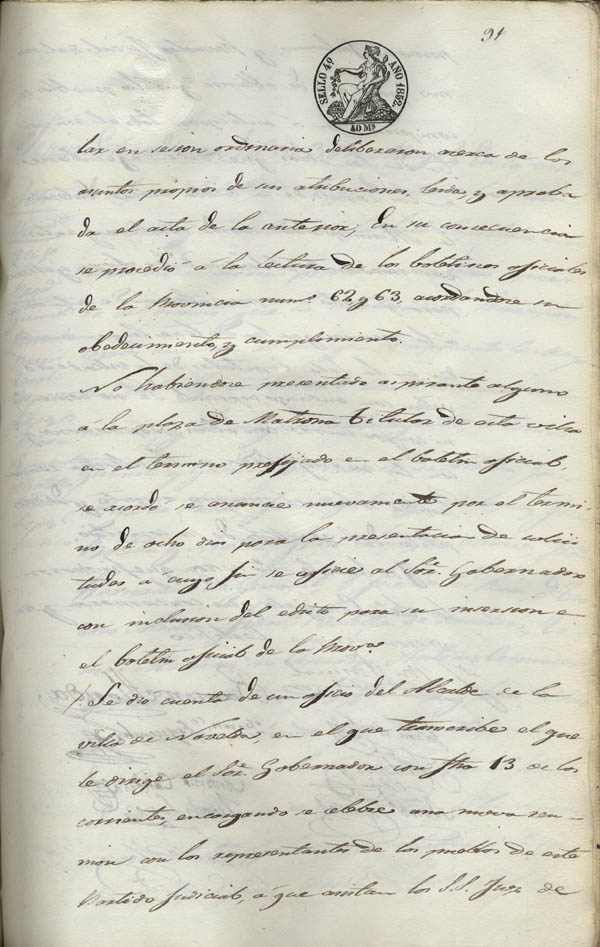 91
SELLO 4º AÑO 1852.
40 Ms
lar en sesion ordinaria deliberaron acerca de los
asuntos propios de sus atribuciones, leida, y aproba-
da el acta de la anterior; En su consecuencia
se procedió á la lectura de los boletines oficiales
de la Provincia nums. 62 y 63, acordandose su
obedecimiento, y cumplimiento.
No habiendose presentado aspirante alguno
á la plaza de Matrona titular de esta villa
en el termino prefijado en el boletin oficial,
se acordó se anuncie nuevamente por el termi-
no de ocho dias para la presentacion de solici-
tudes á cuyo fin se oficie al Sor. Gobernador
con inclusion del edicto para su insersion e
el boletin oficial de la Prova.
Se dio cuenta de un oficio del Alcalde de la
villa de Novelda, en el que trascribe el que
le dirige el Sor. Gobernador con fha 13 de los
corrientes, encargando se celebre una nueva reu-
nion con los representantes de los pueblos de este
Partido Judicial, á que asistan los S.S. Juez de